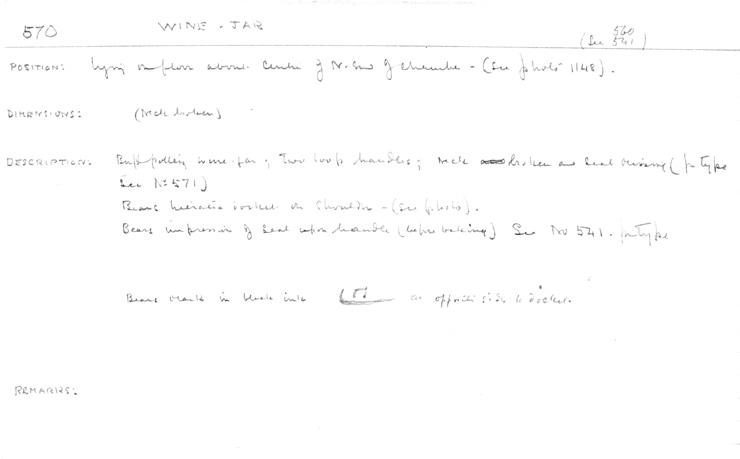 570 WINE-JAR 560
(See 541)
POSITION: Lying on floor about centre of N. end of chamber - (See photo 1148).
DIMENSIONS: (Neck broken)
DESCRIPTION: Buff pottery wine-jar; Two loop handles; neck broken and seal missing (for type
See No 571)
Bears hieratic docket on shoulder - (See photo).
Bears impression of seal upon handle (before baking) See No 541. for type
Bears mark in black ink on opposite side to docket.
REMARKS: